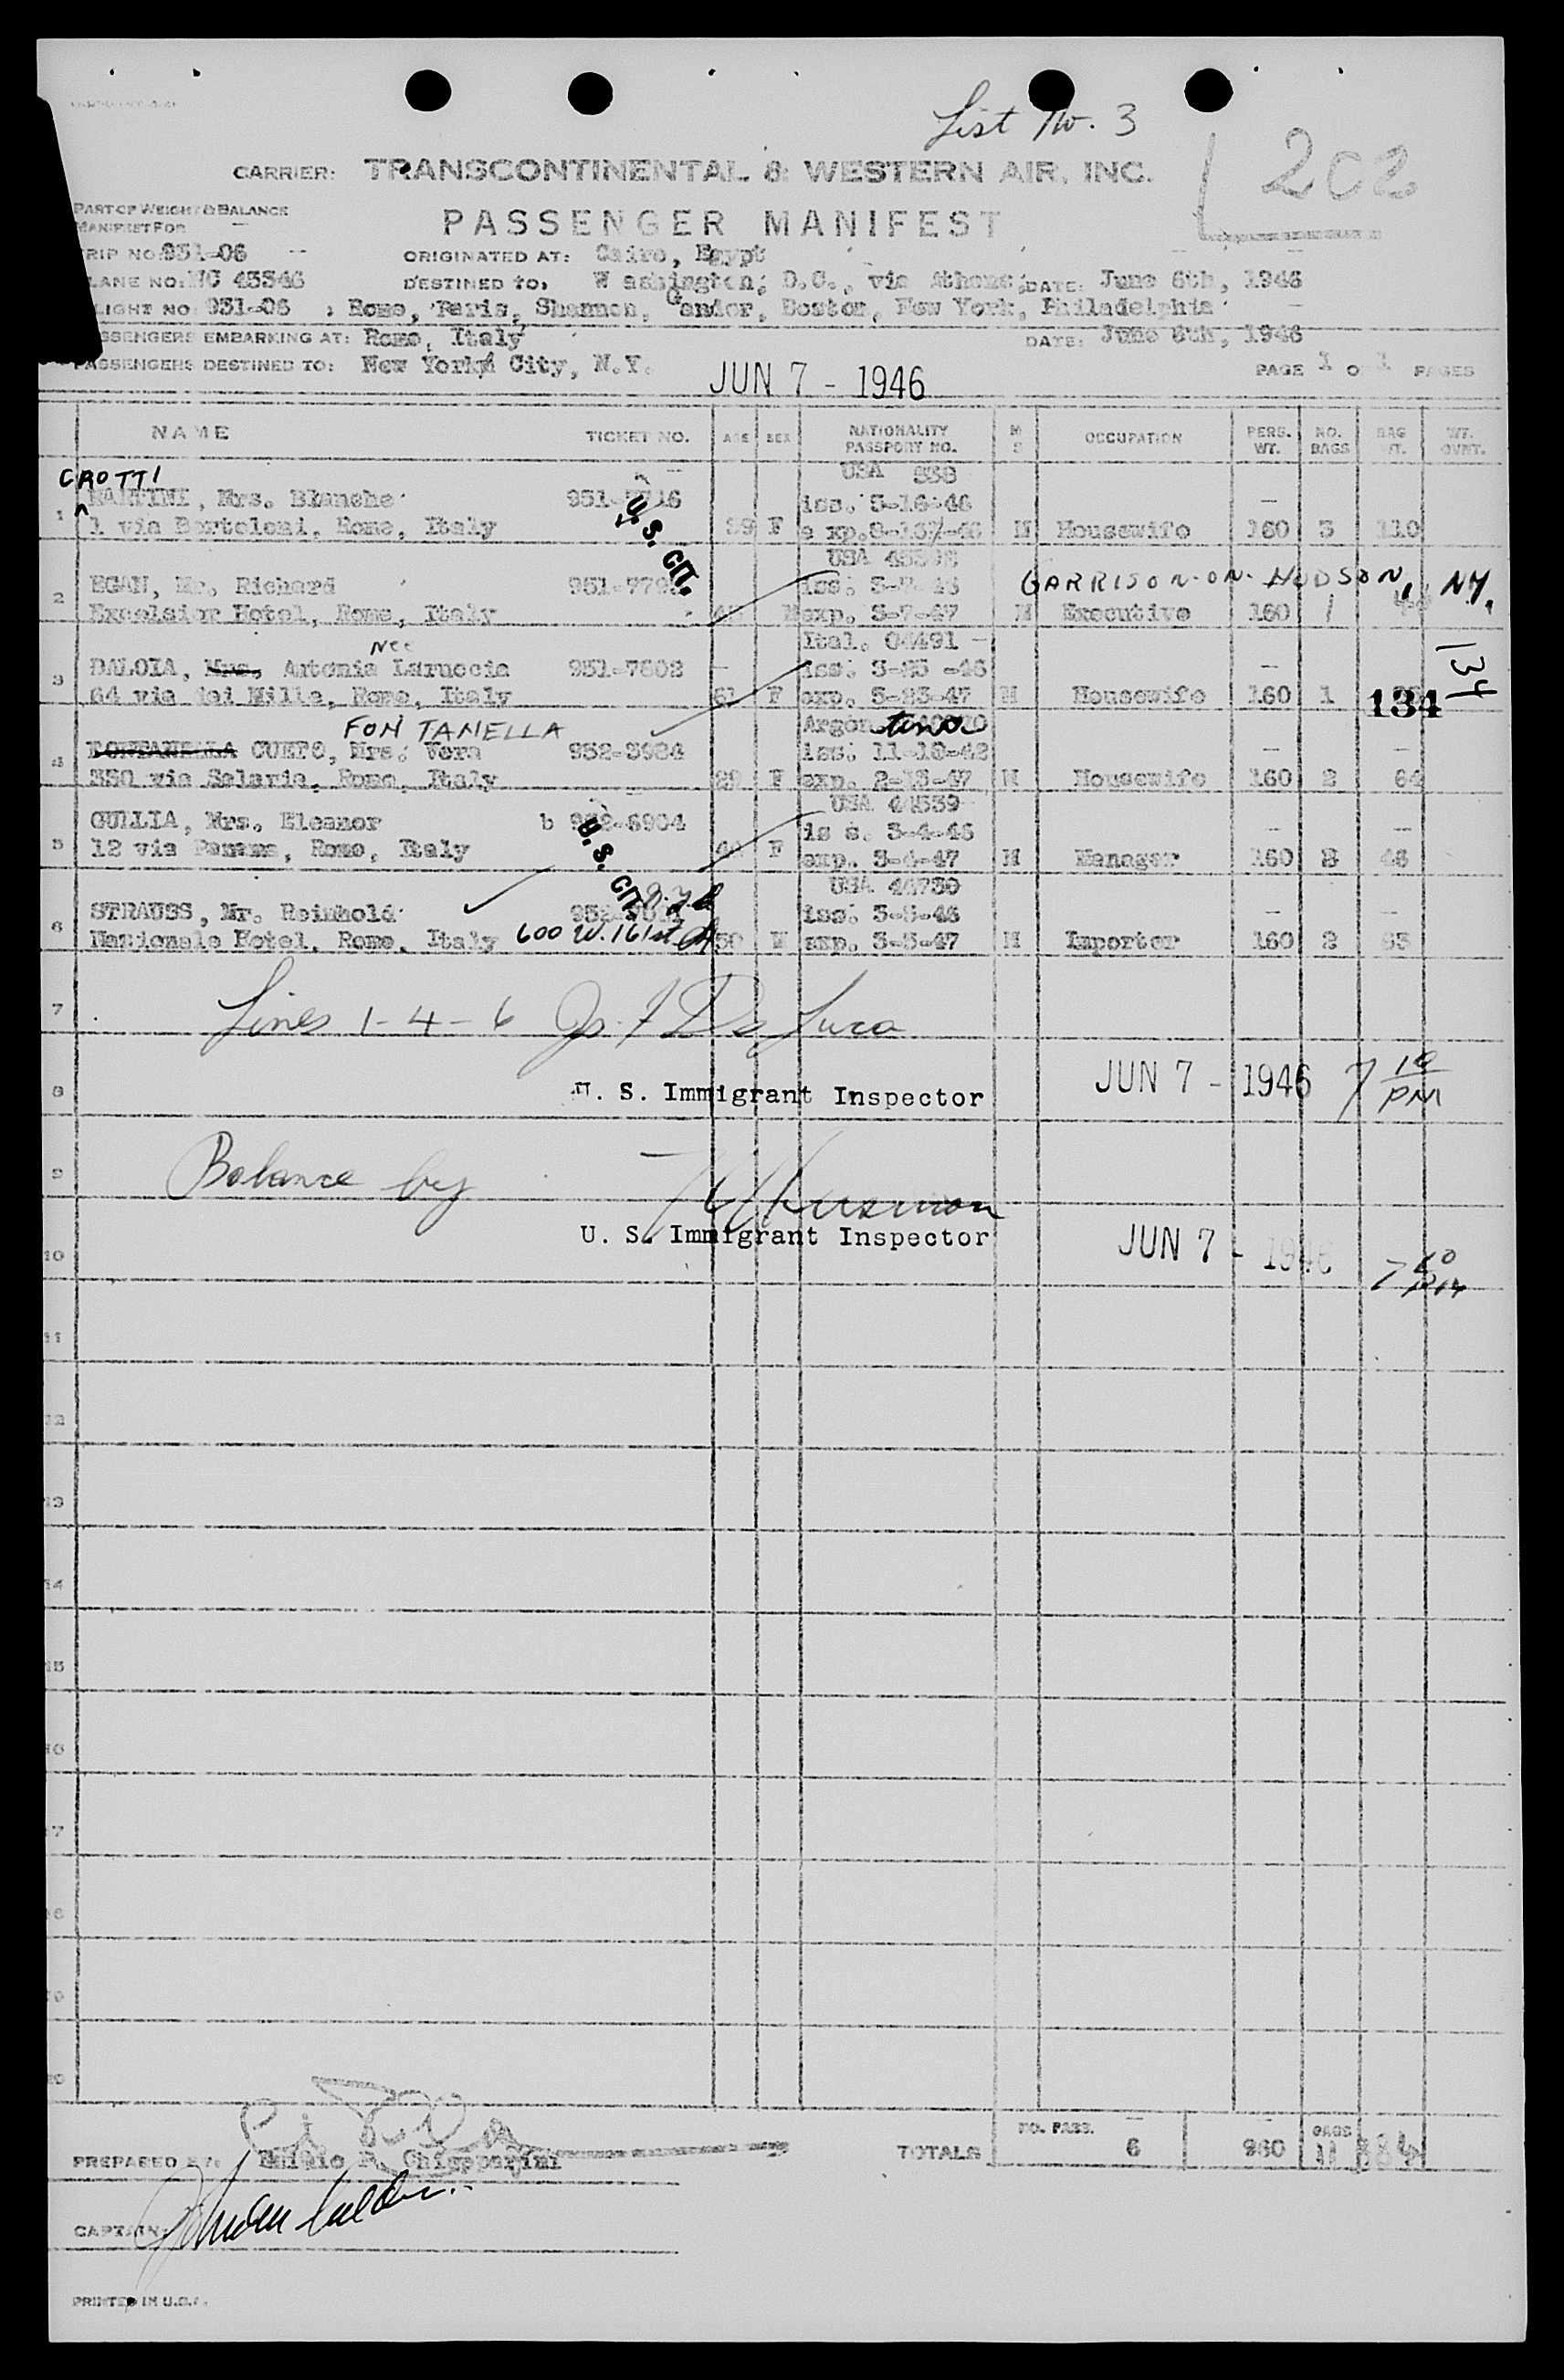 List No. 3
202
CARRIER: TRANSCONTINENTAL & WESTERN AIR, INC.
PART OF WEIGHT & BALANCE
MANIFEST FOR
PASSENGER MANIFEST
RIP NO 951-06 ORIGINATED AT: Cairo, Egypt
LANE NO: NC 45346 DESTINED TO, W ashington, D.C., via Athens, DATE: June 6th, 1946
LIGHT NO 951-06 ; Rome, Paris, Shannon, Gander, Boston, New York, Philadelphia
SSENGERS EMBARKING AT: Rome, Italy DATE: June 6th, 1946
PASSENGERS DESTINED TO: New York City, N.Y. PAGE 1 O 1 PAGES
JUN 7 - 1946
NAME TICKET NO. AGE SEX NATIONALITY PASSPORT NO. M S OCCUPATION PERS. WT. NO. BAGS BAG WT. WT. OVNT.
CROTTI USA
1 MARTINI, Mrs. Blanche 951-7716 iss. 5-16-46
1 via Bortoloni, Rome, Italy 39 F e xp. M Housewife 160 3 110
U. S. CIT.
USA
2 EGAN, Mr. Richard iss. 3-7-46 GARRISON-ON-HUDSON, NY.
Excelsior Hotel, Rome, Italy M exp. 3-7-47 M Executive 160 1
nee Ital. 04491
3 DALOIA, Mrs. Antonia Laruccia 951-7802 iss. 3-25-46 134
64 via dei Mille, Rome, Italy 61 F exp. 3-25-47 M Housewife 160 1 134
FONTANELLA Argentine
4 FONTANELLA CUEFO, Mrs. Vera 952-3924 iss. 11-18-42
350 via Salaria, Rome, Italy 29 F exp. 2-13-47 M Housewife 160 2 64
USA
5 GULLIA, Mrs. Eleanor b 952-6904 is s. 3-4-46
12 via Panama, Rome, Italy F exp. 3-4-47 M Manager 160 2 46
U. S. CIT.
USA 44730
6 STRAUSS, Mr. Reinhold iss. 3-5-46
Nazionale Hotel, Rome, Italy 600 W. 161st St 50 M exp. 3-5-47 M Importer 160 2
7 Lines 1-4-6 Jos. F De Luca
8 U. S. Immigrant Inspector JUN 7 - 1946 7 10 PM
9 Balance by
U. S. Immigrant Inspector
10 JUN 7 - 1946 7 10 PM
11
12
13
14
15
16
17
18
19
20
PREPARED BY: Emilio P. Chiapparini TOTALS NO. PASS. 6 960 BAGS 11
CAPTAIN:
PRINTED IN U.S.A.